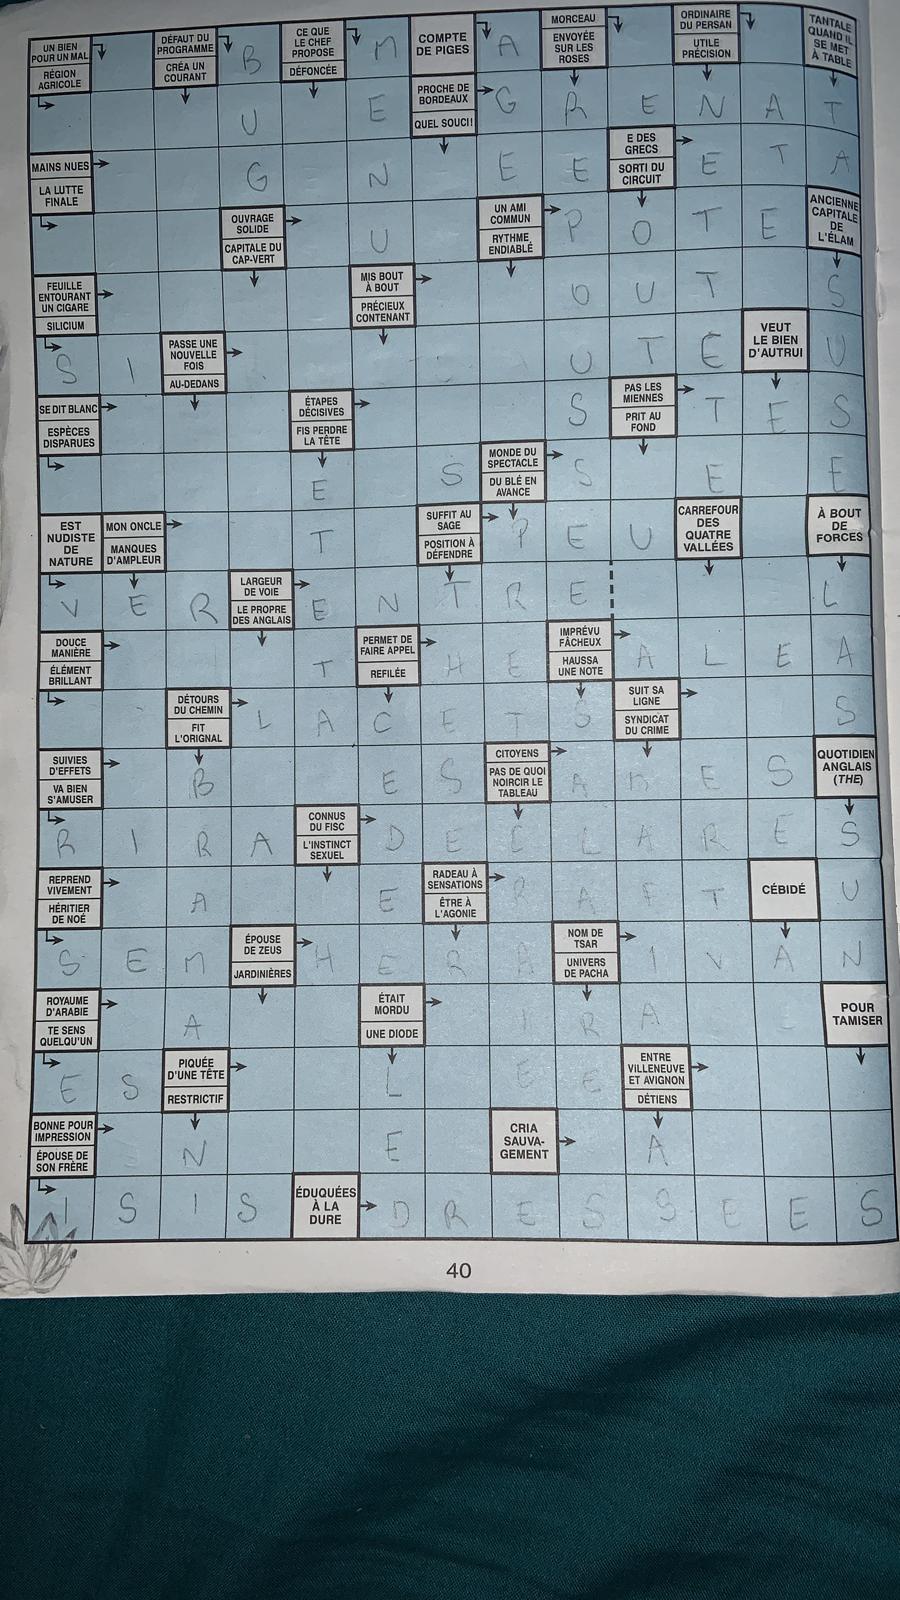 UN BIEN POUR UN MAL
RÉGION AGRICOLE
DÉFAUT DU PROGRAMME
CRÉA UN COURANT
B
CE QUE LE CHEF PROPOSE
DÉFONCÉE
M
COMPTE DE PIGES
A
MORCEAU
ENVOYÉE SUR LES ROSES
ORDINAIRE DU PERSAN
UTILE PRÉCISION
TANTALE QUAND IL SE MET À TABLE
U
E
PROCHE DE BORDEAUX
QUEL SOUCI!
G R E N A T
MAINS NUES
LA LUTTE FINALE
G
N
E E
E DES GRECS
SORTI DU CIRCUIT
E T A
OUVRAGE SOLIDE
CAPITALE DU CAP-VERT
U
UN AMI COMMUN
RYTHME ENDIABLÉ
P O T E
ANCIENNE CAPITALE DE L'ÉLAM
FEUILLE ENTOURANT UN CIGARE
SILICIUM
MIS BOUT À BOUT
PRÉCIEUX CONTENANT
O U T S
S I
PASSE UNE NOUVELLE FOIS
AU-DEDANS
U T E
VEUT LE BIEN D'AUTRUI
U
SE DIT BLANC
ESPÈCES DISPARUES
ÉTAPES DÉCISIVES
FIS PERDRE LA TÊTE
S
PAS LES MIENNES
PRIT AU FOND
T E S
E
S
MONDE DU SPECTACLE
DU BLÉ EN AVANCE
S E E
EST NUDISTE DE NATURE
MON ONCLE
MANQUES D'AMPLEUR
T
SUFFIT AU SAGE
POSITION À DÉFENDRE
P E U
CARREFOUR DES QUATRE VALLÉES
À BOUT DE FORCES
V E R
LARGEUR DE VOIE
LE PROPRE DES ANGLAIS
E N T R E
L
DOUCE MANIÈRE
ÉLÉMENT BRILLANT
T
PERMET DE FAIRE APPEL
REFILÉE
H E
IMPRÉVU FÂCHEUX
HAUSSA UNE NOTE
A L E A
DÉTOURS DU CHEMIN
FIT L'ORIGNAL
L A C E T S
SUIT SA LIGNE
SYNDICAT DU CRIME
S
SUIVIES D'EFFETS
VA BIEN S'AMUSER
B
E S
CITOYENS
PAS DE QUOI NOIRCIR LE TABLEAU
A M E S
QUOTIDIEN ANGLAIS (THE)
R I R A
CONNUS DU FISC
L'INSTINCT SEXUEL
D E C L A R E S
REPREND VIVEMENT
HÉRITIER DE NOÉ
A
E
RADEAU À SENSATIONS
ÊTRE À L'AGONIE
R A F T
CÉBIDÉ
U
S E M
ÉPOUSE DE ZEUS
JARDINIÈRES
H E R A
NOM DE TSAR
UNIVERS DE PACHA
I V A N
ROYAUME D'ARABIE
TE SENS QUELQU'UN
A
ÉTAIT MORDU
UNE DIODE
I R A
POUR TAMISER
E S
PIQUÉE D'UNE TÊTE
RESTRICTIF
L
E E
ENTRE VILLENEUVE ET AVIGNON
DÉTIENS
BONNE POUR IMPRESSION
ÉPOUSE DE SON FRÈRE
N
E
CRIA SAUVA-GEMENT
A
I S I S
ÉDUQUÉES À LA DURE
D R E S S E E S
40